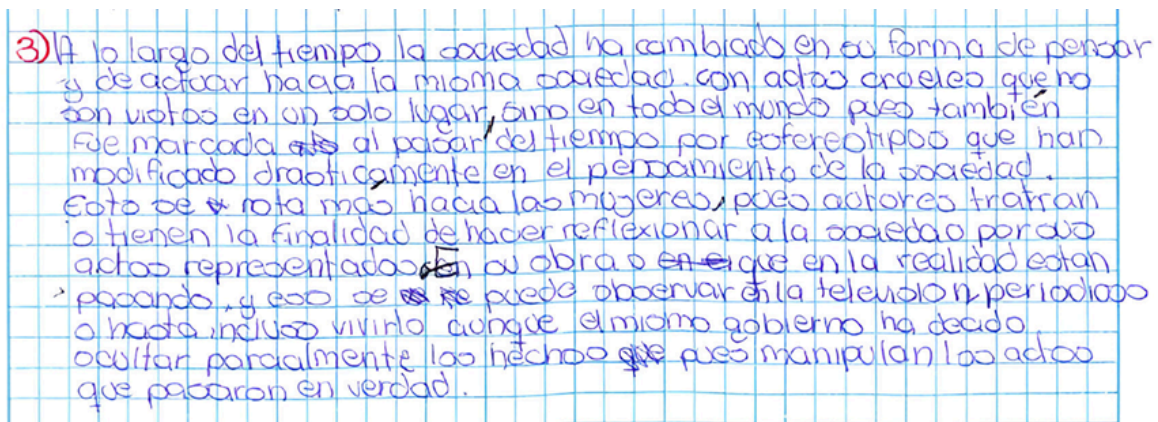 3) A lo largo del tiempo la sociedad ha cambiado en su forma de pensar
y de actuar hacia la misma sociedad. con actos crueles que no
son vistos en un solo lugar, sino en todo el mundo pues también
fue marcada al pasar del tiempo por estereotipos que han
modificado drasticamente en el pensamiento de la sociedad.
Esto se nota más hacia las mujeres, pues actores tratran
o tienen la finalidad de hacer reflexionar a la sociedad por sus
actos representados en su obra o que en la realidad estan
pasando, y eso se puede observar en la televisión, periodicos
o hasta incluso vivirlo aunque el mismo gobierno ha decido
ocultar parcialmente los hechos pues manipulan los actos
que pasaron en verdad.